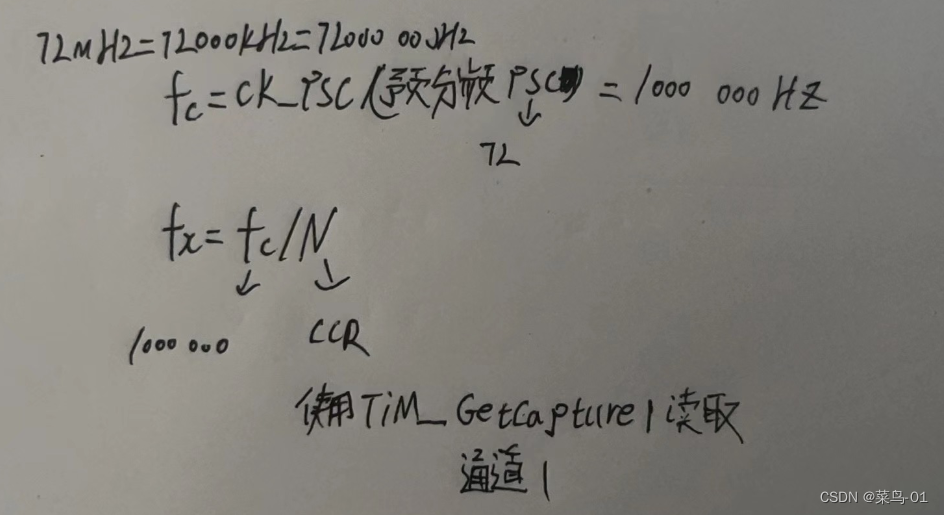 72MHz=72000KHz=72000 000Hz
fc=CK_PSC/(预分频PSC)=1000 000HZ
72
fx=fc/N
1000 000 CCR
使用TiM_GetCapture1读取
通道1
CSDN @菜鸟-01